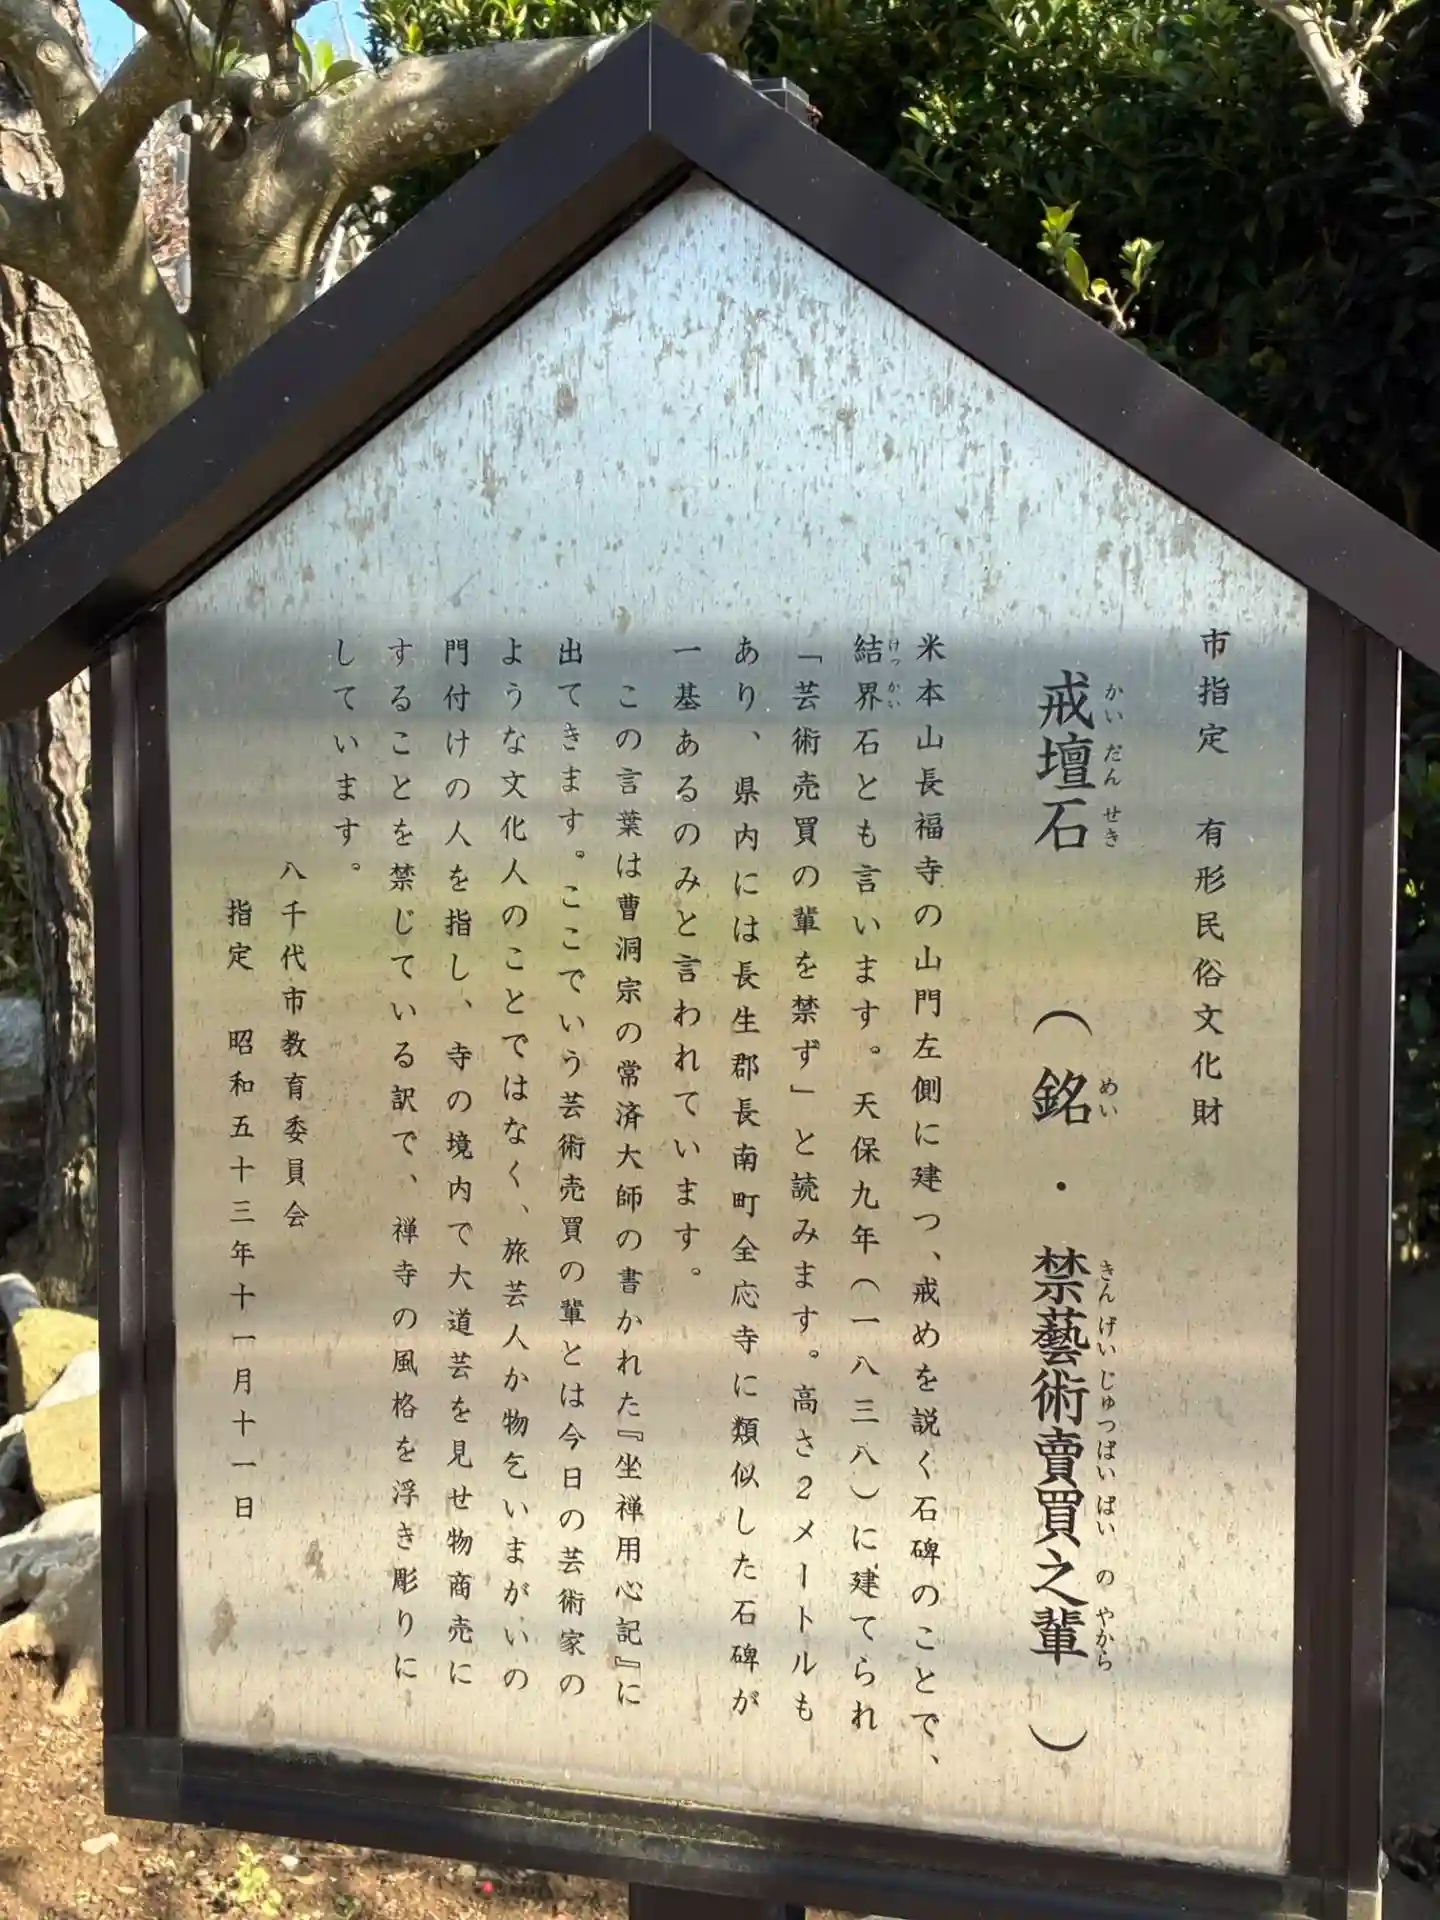 市指定　有形民俗文化財
戒壇石　（銘・禁藝術賣買之輩）
かいだんせき　めい　きんげいじゅつばいばいのやから
米本山長福寺の山門左側に建つ、戒めを説く石碑のことで、
結界石とも言います。天保九年（一八三八）に建てられ
けっかい
「芸術売買の輩を禁ず」と読みます。高さ2メートルも
あり、県内には長生郡長南町全応寺に類似した石碑が
一基あるのみと言われています。
この言葉は曹洞宗の常済大師の書かれた『坐禅用心記』に
出てきます。ここでいう芸術売買の輩とは今日の芸術家の
ような文化人のことではなく、旅芸人か物乞いまがいの
門付けの人を指し、寺の境内で大道芸を見せ物商売に
することを禁じている訳で、禅寺の風格を浮き彫りに
しています。
八千代市教育委員会
指定　昭和五十三年十一月十一日